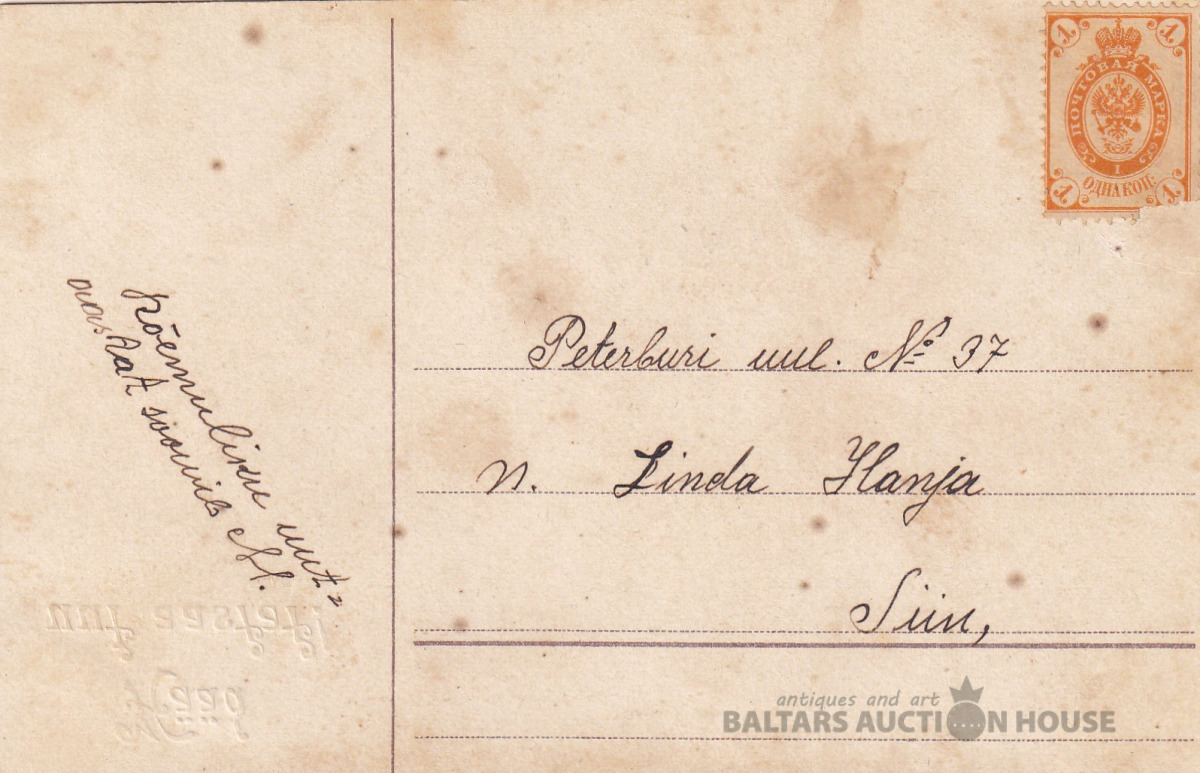 rõemuliku uut=
aastat soovib M.
1 1
ПОЧТОВАЯ МАРКА
1
ОДНА КОП.
1 1
Peterburi uul. № 37
n. Linda Hanja
Siin,
Hääd
uut aastat!
antiques and art
BALTARS AUCTION HOUSE